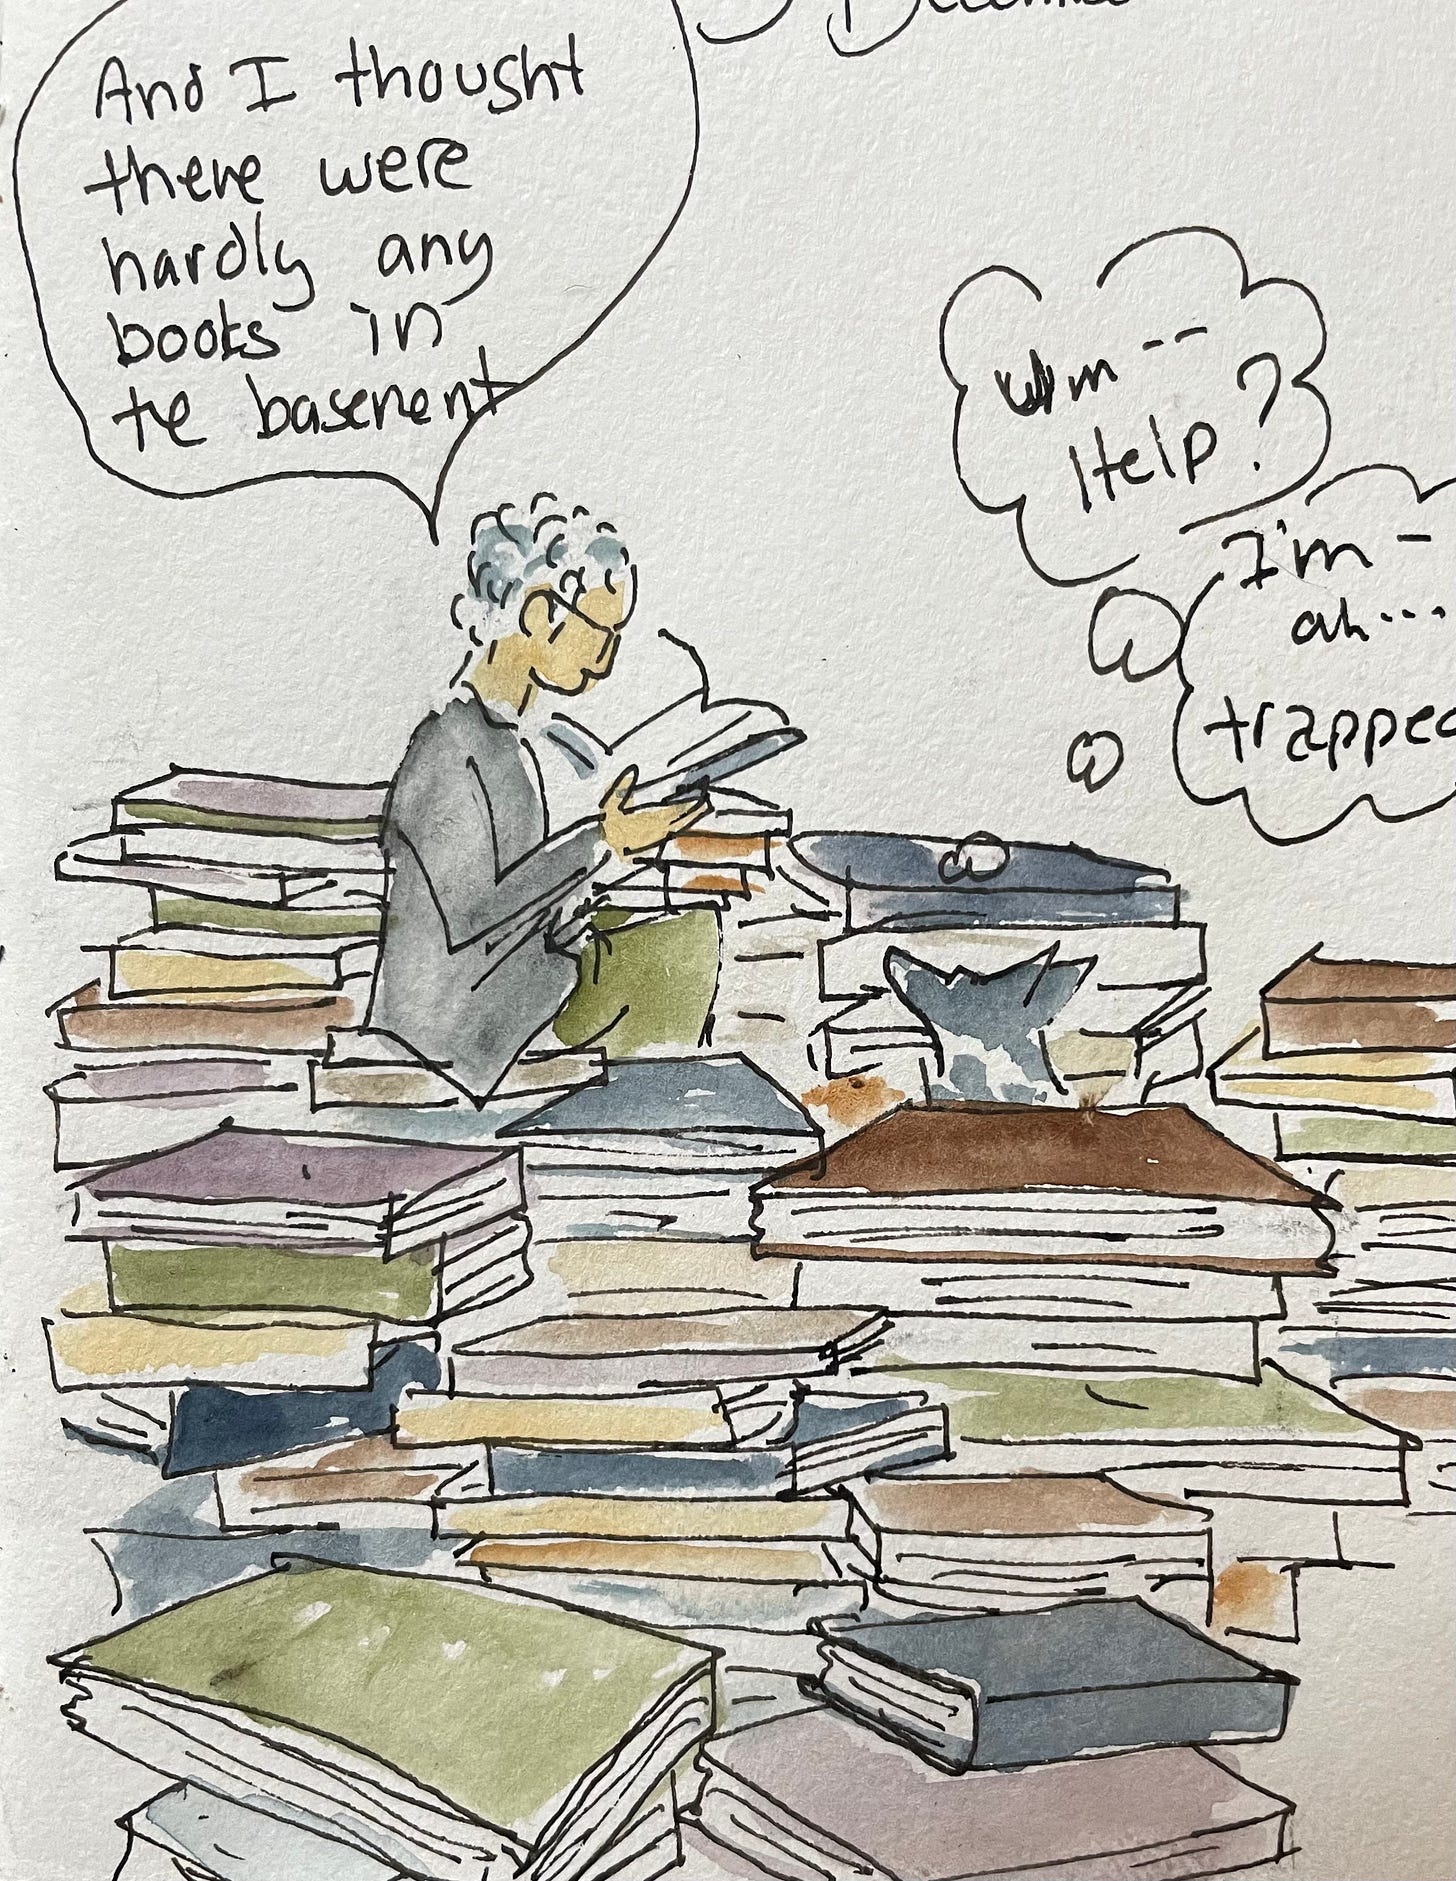 And I thought
there were
hardly any
books in
te basement
um --
Help?
I'm -
ah...
trapped